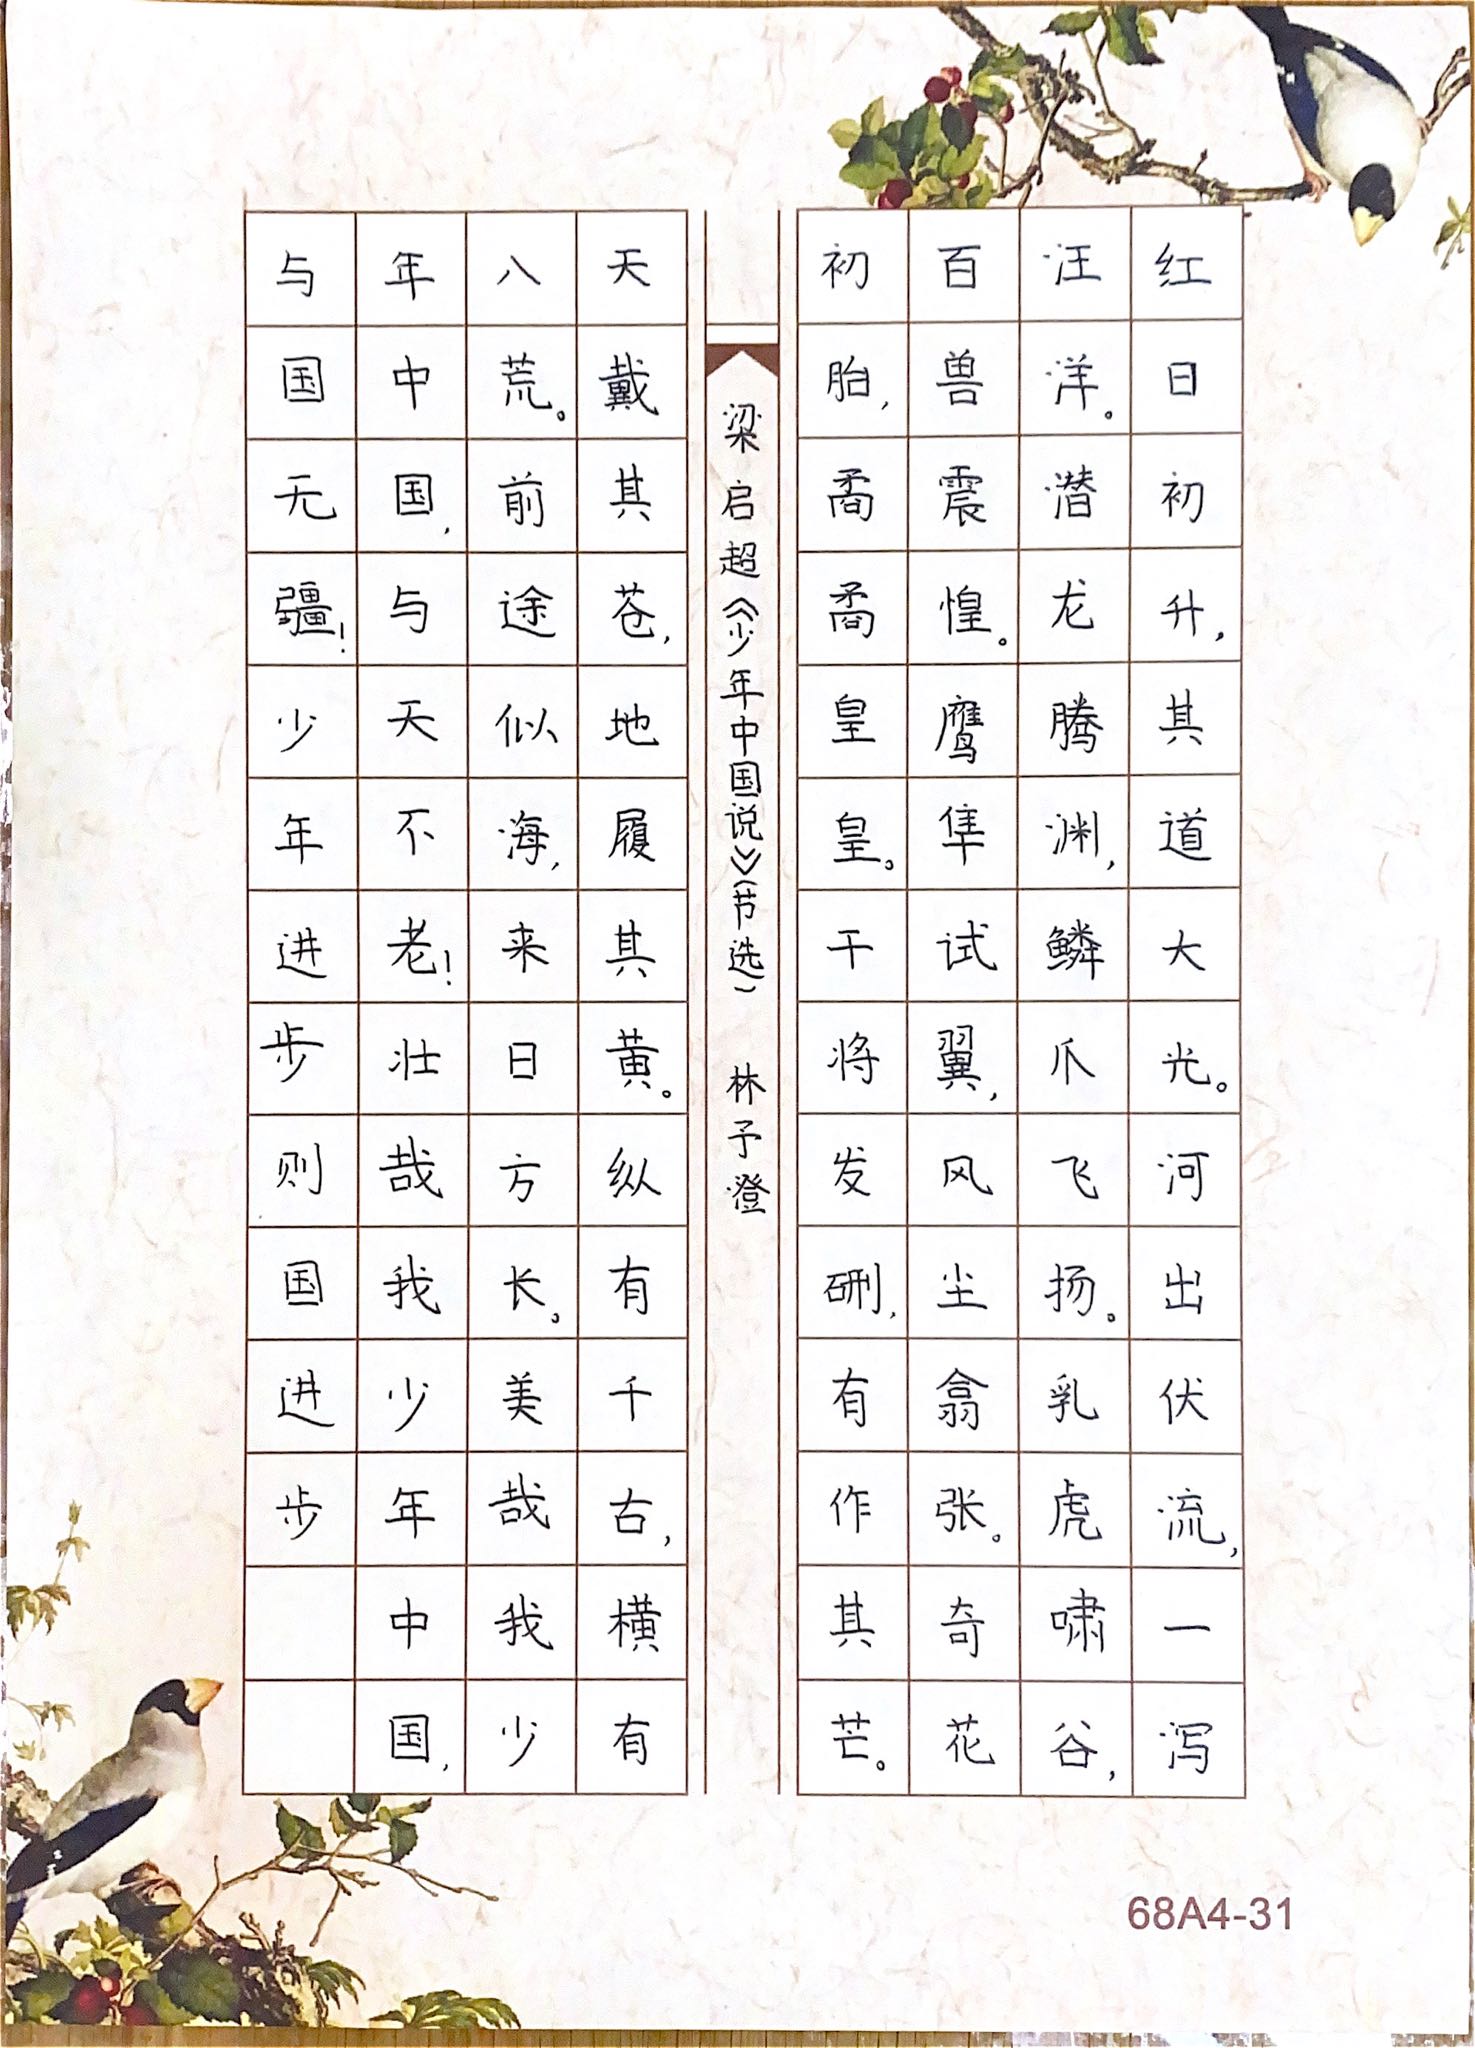 红日初升，其道大光。河出伏流，一泻
汪洋。潜龙腾渊，鳞爪飞扬。乳虎啸谷，
百兽震惶。鹰隼试翼，风尘翕张。奇花
初胎，矞矞皇皇。干将发硎，有作其芒。
梁启超《少年中国说》（节选） 林予澄
天戴其苍，地履其黄。纵有千古，横有
八荒。前途似海，来日方长。美哉我少
年中国，与天不老！壮哉我少年中国，
与国无疆！少年进步则国进步
68A4-31